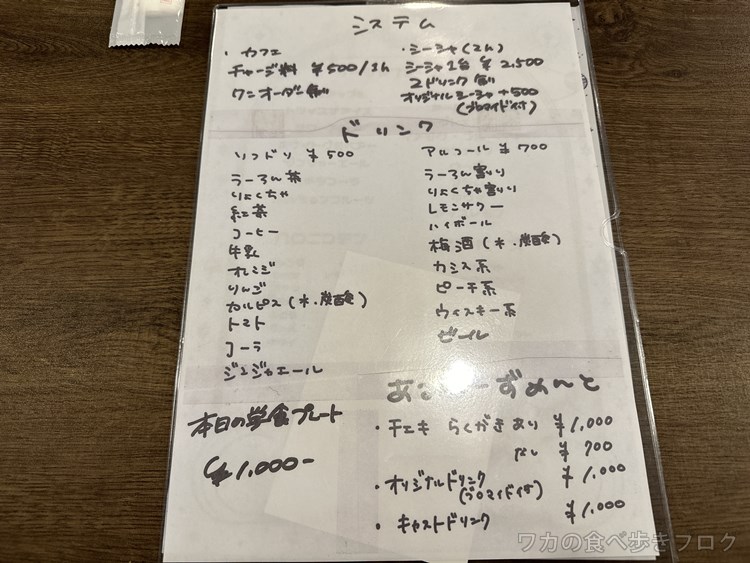 システム
・カフェ
チャージ料 ¥500/1h
ワンオーダー制
・シーシャ(2h)
シーシャ1台 ¥2,500
2ドリンク制
オリジナルシーシャ +500
(ブロマイド付)
ドリンク
ソフドリ ¥500
うーろん茶
りょくちゃ
紅茶
コーヒー
牛乳
オレンジ
りんご
カルピス(水・炭酸)
トマト
コーラ
ジンジャエール
アルコール ¥700
うーろん割り
りょくちゃ割り
レモンサワー
ハイボール
梅酒(水・炭酸)
カシス系
ピーチ系
ウィスキー系
ビール
本日の学食プレート
¥1,000-
ずめんと
・チェキ らくがきあり ¥1,000
なし ¥700
・オリジナルドリンク ¥1,000
(ブロマイド付)
・キャストドリンク ¥1,000
ワカの食べ歩きブログ